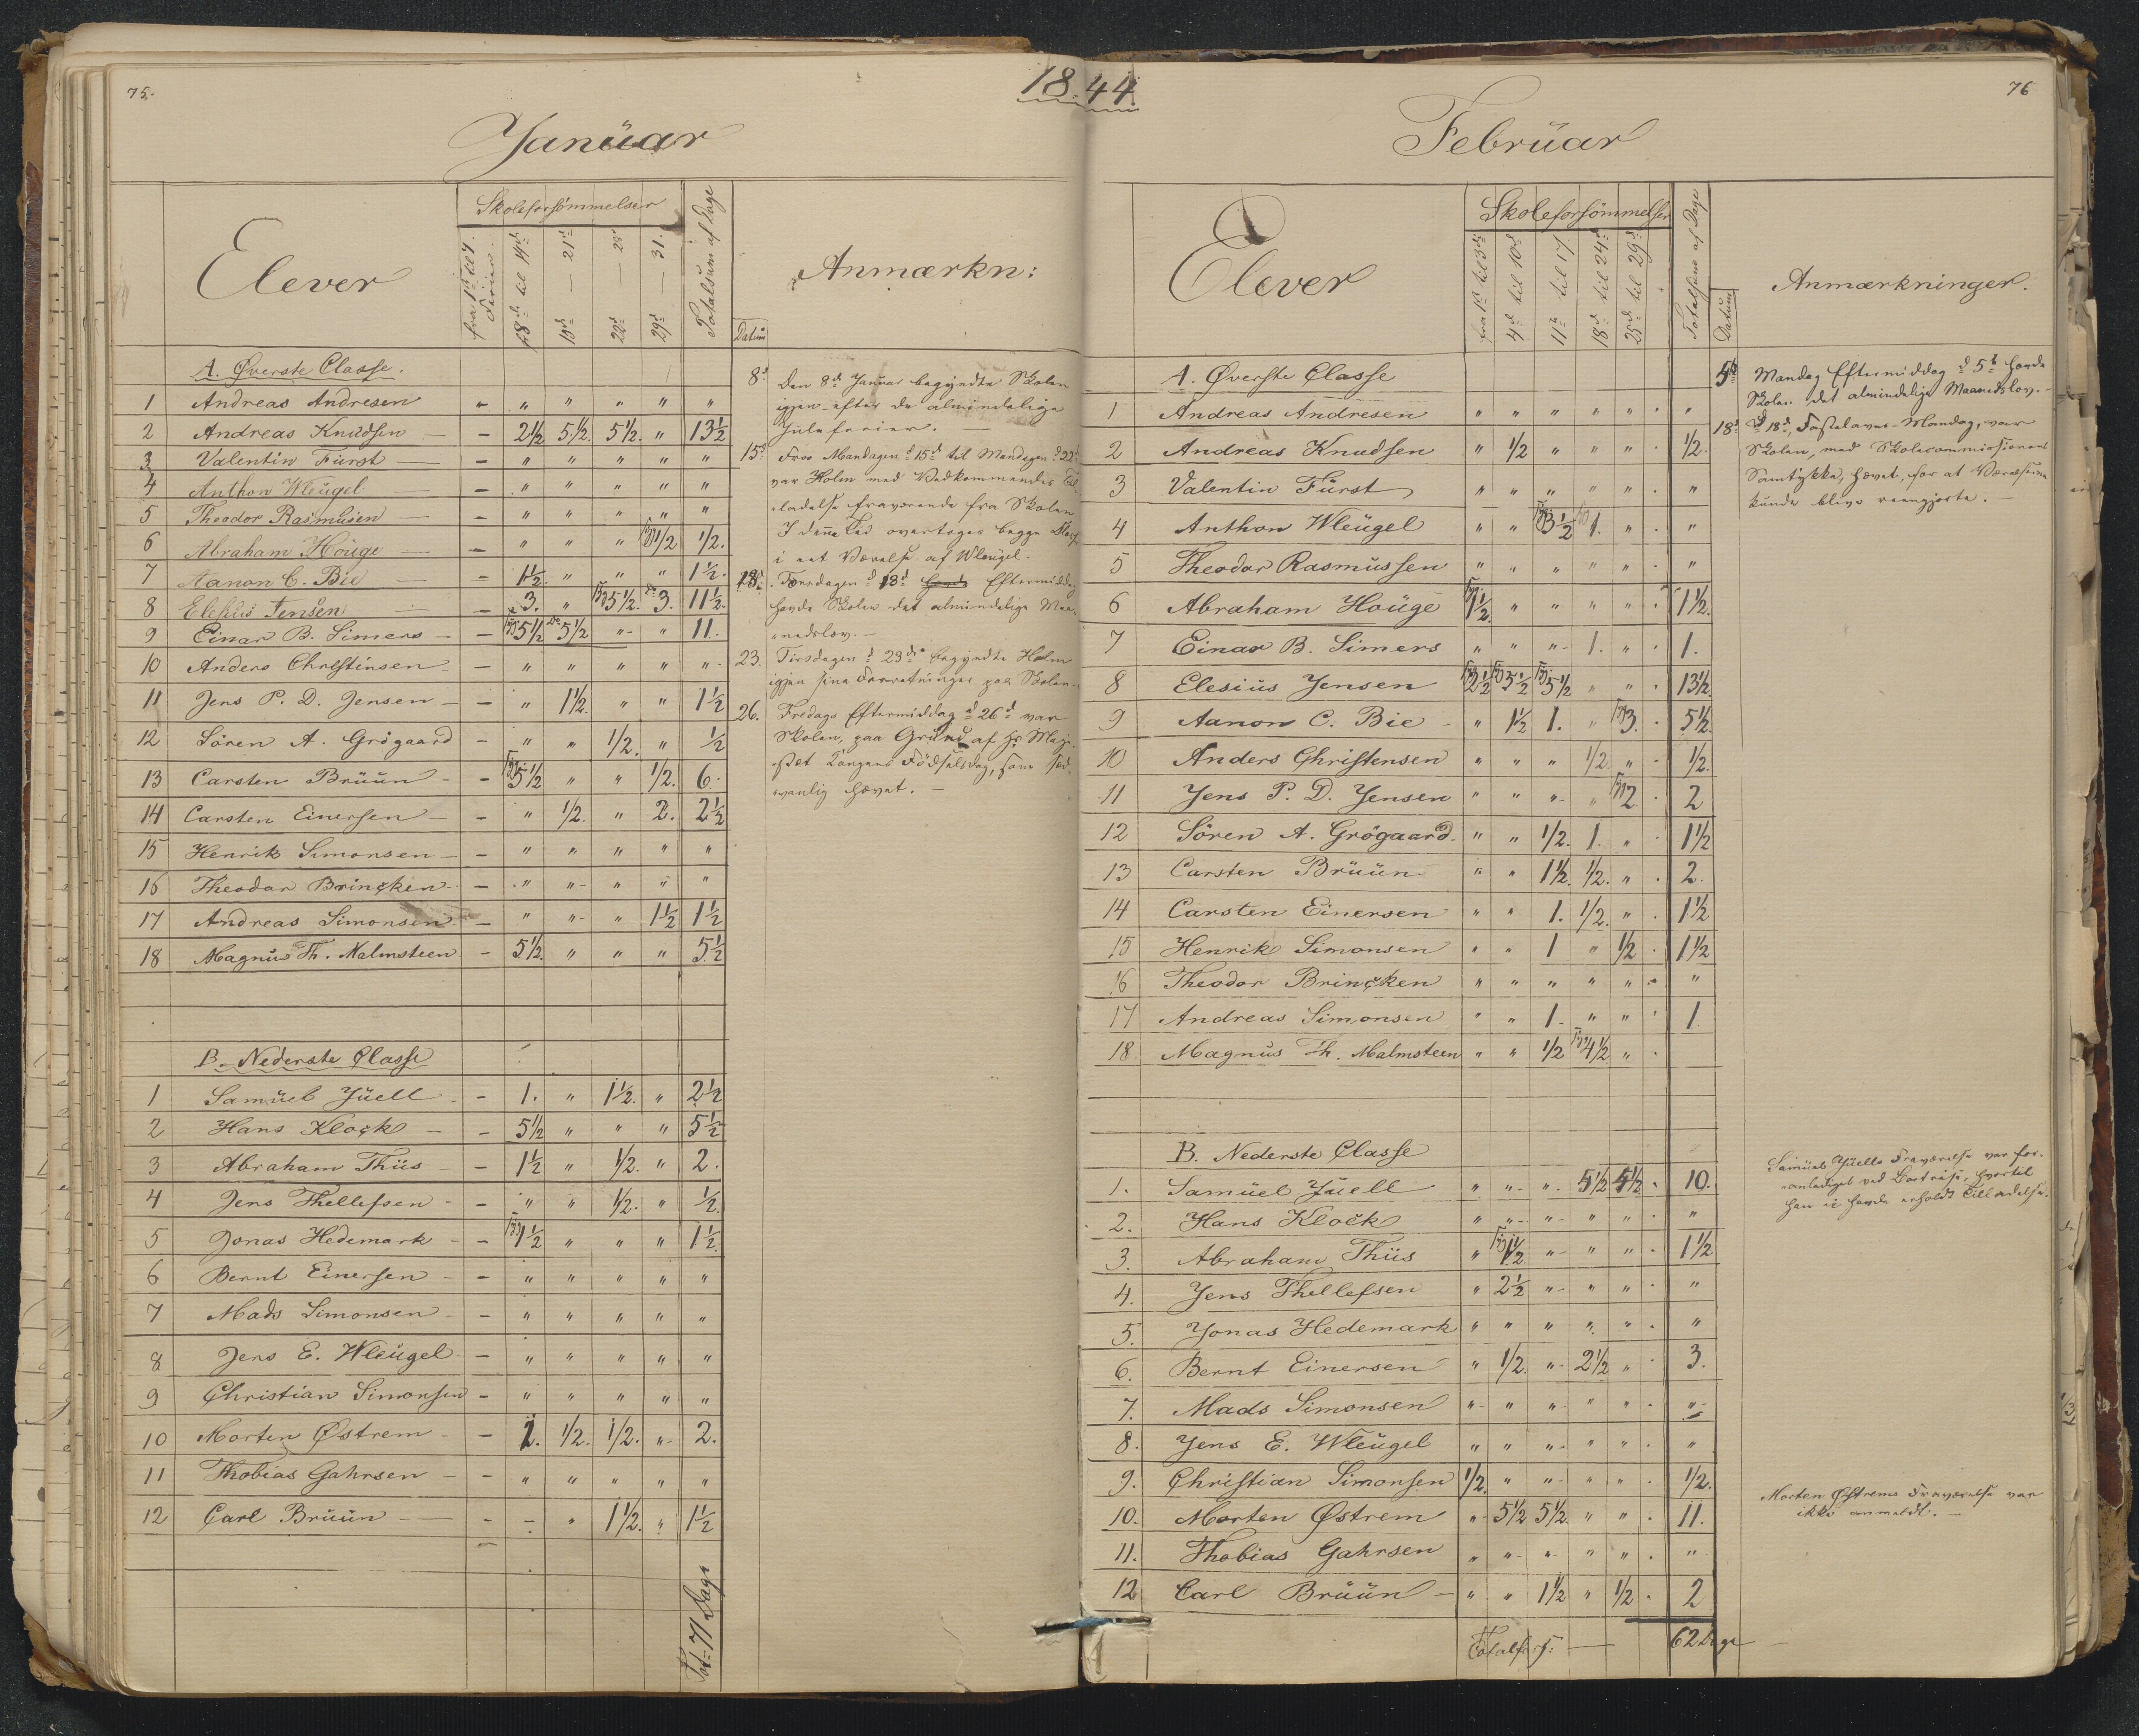 1844
75.
Januar
Elever
Skoleforsömmelser
fra 1ste til 7. Ferier.
fra 8de til 14de
15d — 21d
22d — 28d
29d — 31.
Totalsum af Dage
Datum
Anmærkn:
A. Øverste Classe.
1 Andreas Andresen - " " " " "
2 Andreas Knudsen - 2 1/2 5 1/2. 5 1/2. " 13 1/2
3 Valentin Fürst - " " " " "
4 Anthon Wleügel - " " " " "
5 Theodor Rasmüsen - " " " " "
6 Abraham Höuge - " " " 1/2 1/2.
7 Aanon C. Bie - 1 1/2. " " " 1 1/2.
8 Elesius Jensen - 3. " 5 1/2. 3. 11 1/2.
9 Einar B. Simers - 5 1/2 5 1/2 " " 11.
10 Anders Christinsen - " " " " "
11 Jens P. D. Jensen - " 1 1/2. " " 1 1/2
12 Sören A. Grögaard - " " 1/2. " 1/2
13 Carsten Brüün - 5 1/2 " " 1/2. 6.
14 Carsten Einersen - " 1/2. " 2. 2 1/2
15 Henrik Simonsen - " " " " "
16 Theodor Brincken - " " " " "
17 Andreas Simonsen - " " " 1 1/2 1 1/2
18 Magnus Th. Malmsteen - 5 1/2. " " " 5 1/2
B. Nederste Classe
1 Samüel Jüell - 1. " 1 1/2. " 2 1/2
2 Hans Klock - 5 1/2 " " " 5 1/2
3 Abraham Thiis - 1 1/2 " 1/2. " 2.
4 Jens Thellefsen - " " 1/2. " 1/2.
5 Jonas Hedemark - 1 1/2 " " " 1 1/2.
6 Bernt Einersen - " " " " "
7 Mads Simonsen - " " " " "
8 Jens E. Wleügel - " " " " "
9 Christian Simonsen - " " " " "
10 Morten Østrem - 1. 1/2. 1/2. " 2.
11 Thobias Gahrsen - " " " " "
12 Carl Brüün - - " 1 1/2. " 1 1/2
Tot: 71 Dage
8d Den 8de Januar begyndte Skolen
igjen efter de almindelige
Juleferier. —
15d Fra Mandagen d 15d til Mandagen d 22d
var Holm med Vedkommendes Til-
ladelse fraværende fra Skolen
I denne Tid overtoges begge Klasser
i eet Værelse af Wleügel.
18d Torsdagen d 18d Eftermiddag
havde Skolen det almindelige Maa-
nedslov. —
23. Tirsdagen d 23de begyndte Holm
igjen sine Forretninger paa Skolen.
26. Fredags Eftermiddag d 26d var
Skolen, paa Grund af Hs Maje-
stæt Kongens Födselsdag, som sæd-
vanlig hævet. —
76
Februar
Elever
Skoleforsömmelser
fra 1ste til 3die
4d til 10d
11te til 17
18d til 24d
25d til 29d
Totalsum af Dage
Datum
Anmærkninger.
A. Øverste Classe
1 Andreas Andresen " " " " " "
2 Andreas Knudsen " 1/2 " " " 1/2.
3 Valentin Fürst " " " " " "
4 Anthon Wleügel " " 3 1/2 1. " "
5 Theodor Rasmüssen " " " " " "
6 Abraham Hoüge 1 1/2. " " " " 1 1/2.
7 Einar B. Simers " " " 1. " 1.
8 Elesiüs Jensen 2 1/2 5 1/2 5 1/2 " " 13 1/2.
9 Aanon C. Bie " 1 1/2 1. " 3. 5 1/2.
10 Anders Christensen " " " 1/2. " 1/2.
11 Jens P. D. Jensen " " " " 2. 2
12 Sören A. Grögaard. " " 1/2. 1. " 1 1/2
13 Carsten Brüün " " 1 1/2. 1/2. " 2.
14 Carsten Einersen " " 1. 1/2. " 1 1/2
15 Henrik Simonsen " " 1 " 1/2 1 1/2
16 Theodor Brincken " " " " " "
17 Andreas Simonsen " " 1. " " 1.
18. Magnüs Th. Malmsteen " " 1/2 4 1/2 "
B. Nederste Classe
1. Samüel Jüell " " " 5 1/2 4 1/2 10.
2. Hans Klock " " " " " "
3. Abraham Thiis " 1 1/2. " " " 1 1/2
4. Jens Thellefsen " 2 1/2 " " " "
5. Jonas Hedemark " " " " " "
6. Bernt Einersen " 1/2. " 2 1/2 " 3.
7. Mads Simonsen " " " " " "
8. Jens E. Wleügel " " " " " "
9. Christian Simonsen 1/2. " " " " 1/2.
10. Morten Østrem " 5 1/2 5 1/2. " " 11.
11. Thobias Gahrsen " " " " " "
12 Carl Brüün " " 1 1/2 " 1/2 2
Totalfors: — 62 Dage
5te Mandag Eftermiddag d 5te havde
Skolen det almindelige Maanedslov. —
18d d 18d, Fastelavns-Mandag, var
Skolen, med Skolecommissionens
Samtykke, hævet, for at Værelserne
kunde blive reengjorte. —
Samüel Jüells Fraværelse var for-
anlediget ved Bortreise, hvortil
han ei havde erholdt Tilladelse.
Morten Østrems Fraværelse var
ikke anmeldt. —